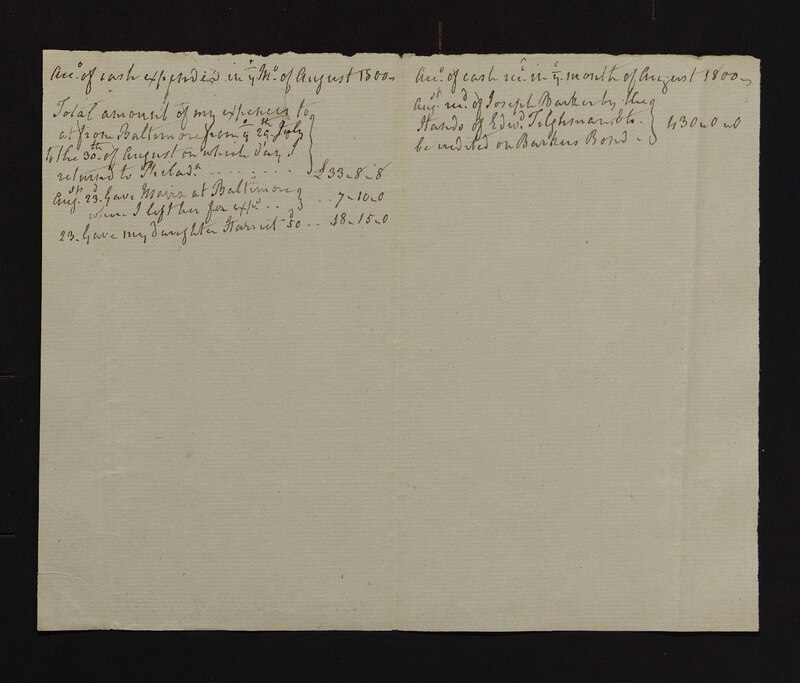 Acc.t of cash expended in ye Mo. of August 1800
Total amount of my expences to
at & from Baltimore from ye 26th July
to the 30th of August on which day I
returned to Philada. . . . . . . . £33-8-8
Aug.st 23.d Gave Maria at Baltimore
when I left her for exp.s . . . . 7-10-0
23. Gave my daughter Harriet $50 . . 18-15-0
Acc.t of cash rec.d in ye month of August 1800
Aug.st rec.d of Joseph Barker by the
Hands of Edw.d Tilghman & to
be credited on Barkers Bond - 430-0-0